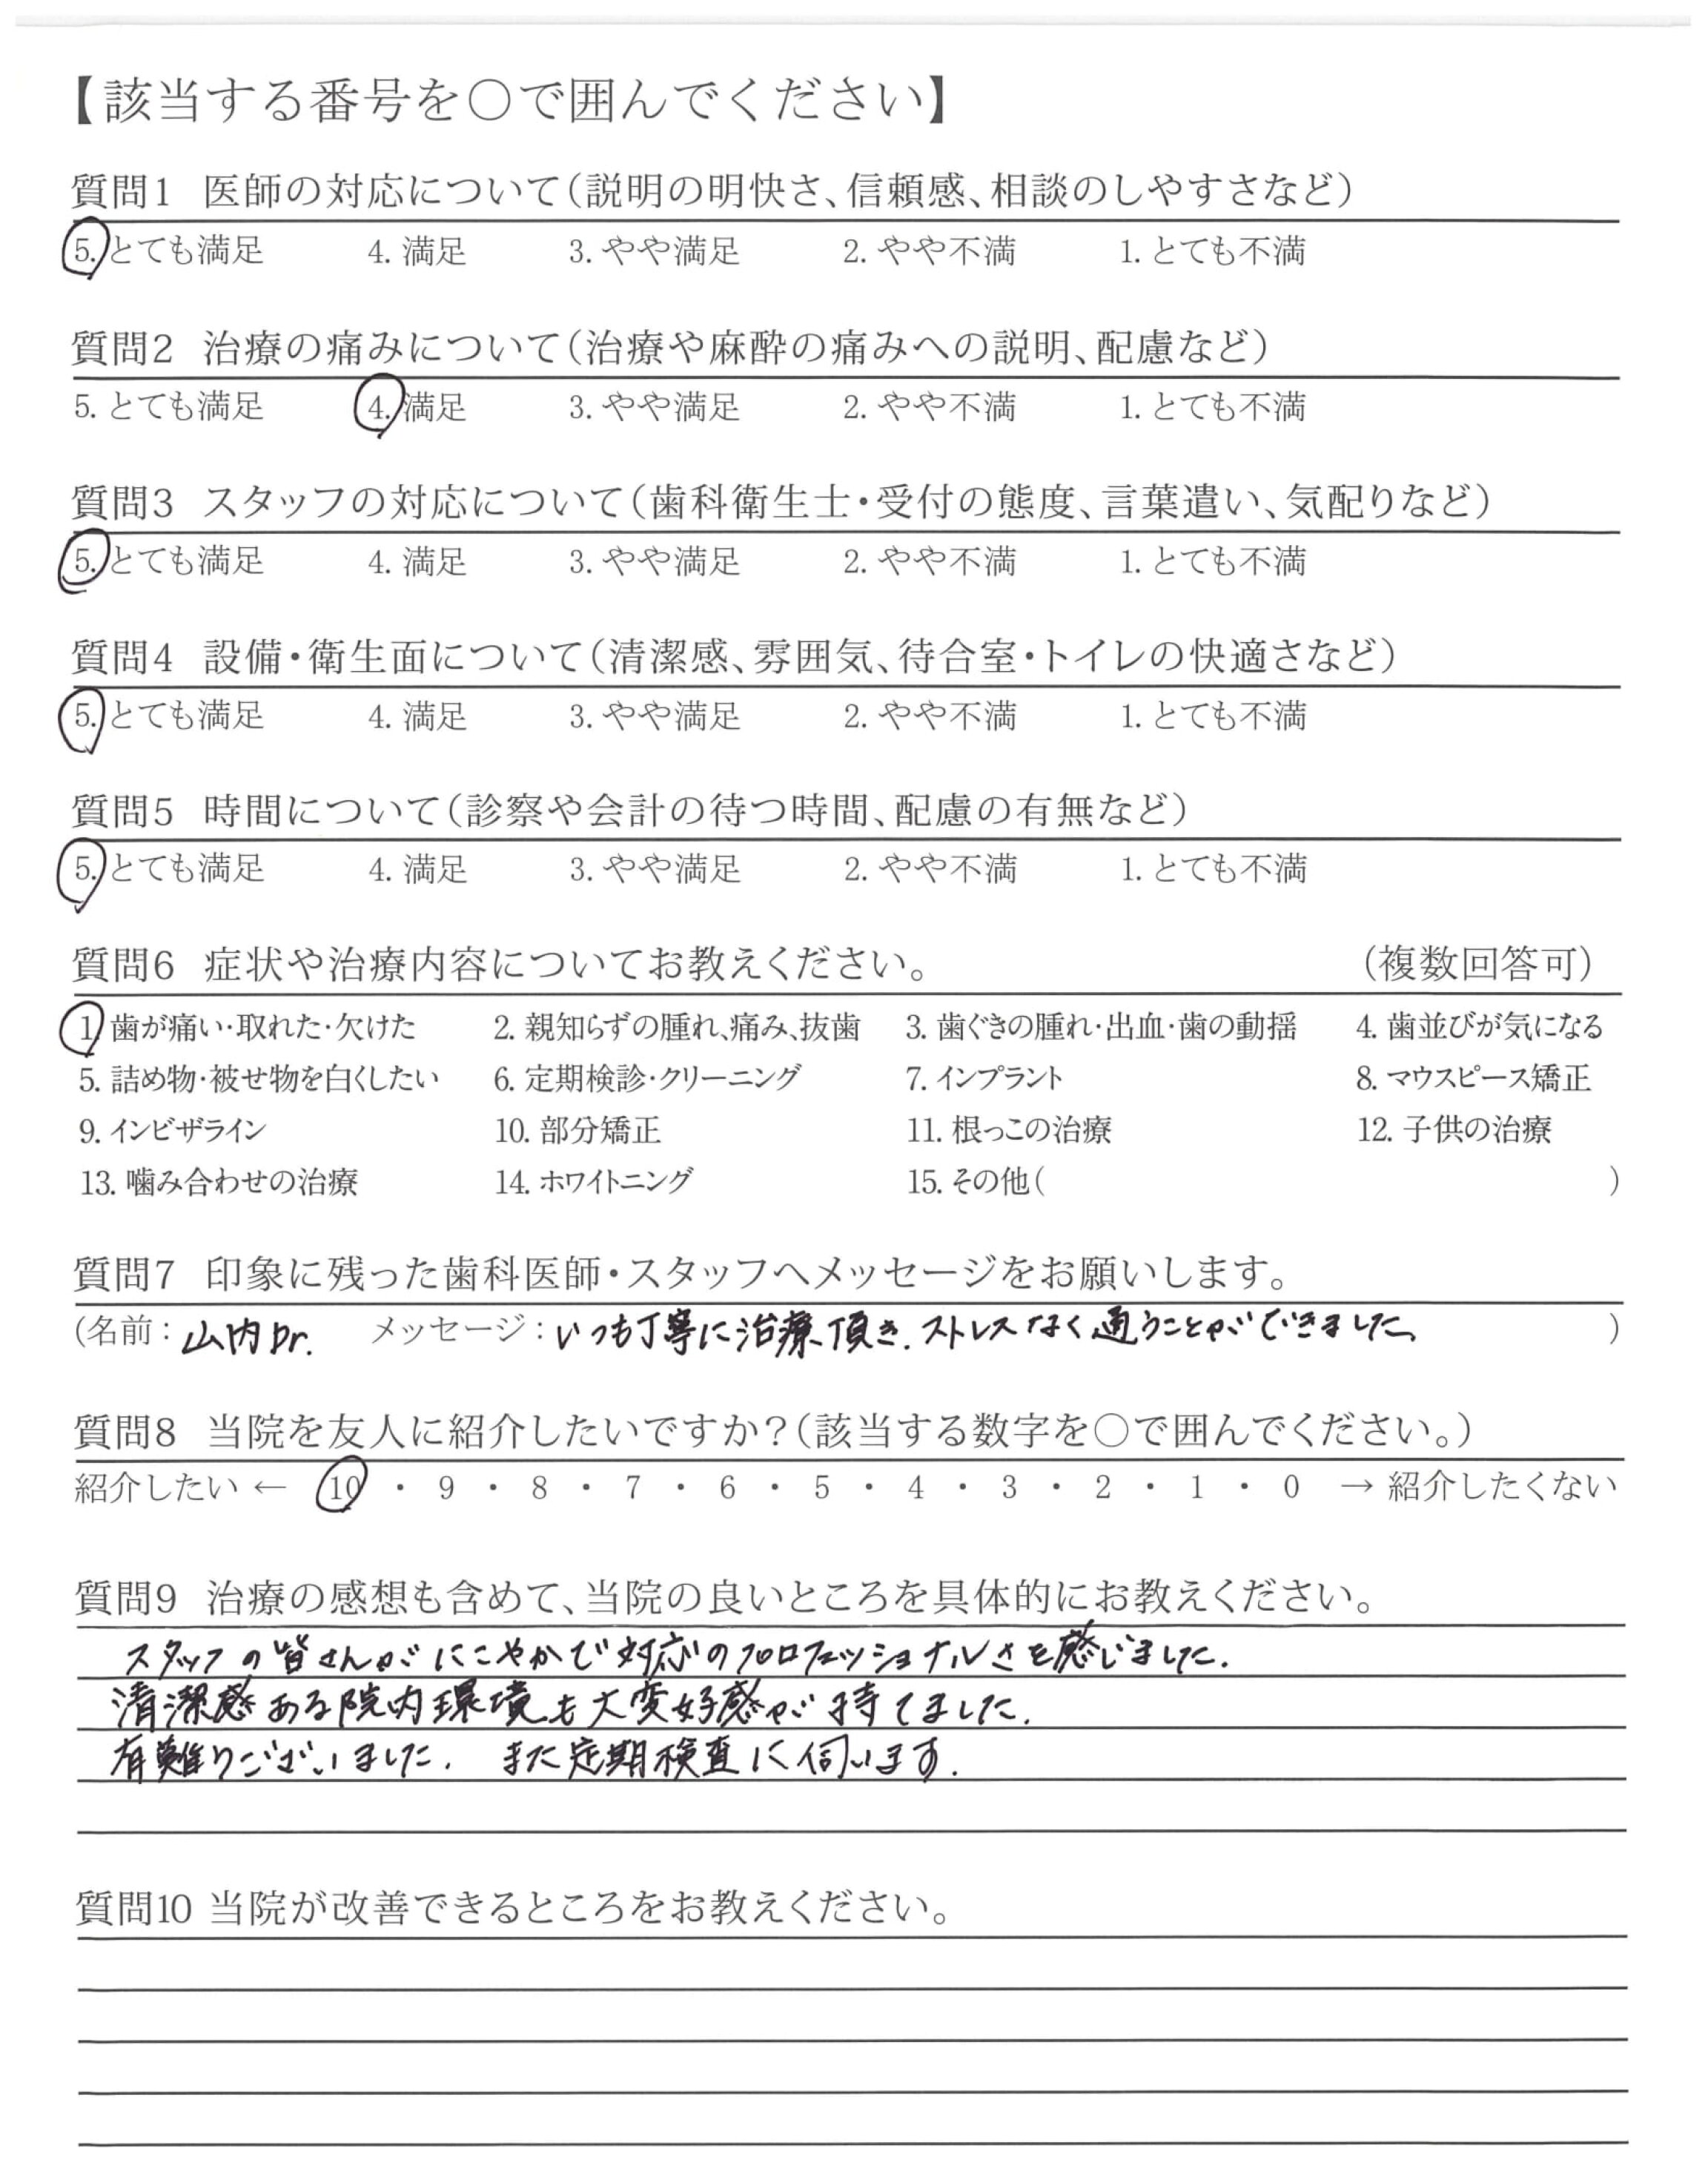 【該当する番号を○で囲んでください】
質問1 医師の対応について（説明の明快さ、信頼感、相談のしやすさなど）
5. とても満足 4. 満足 3. やや満足 2. やや不満 1. とても不満
質問2 治療の痛みについて（治療や麻酔の痛みへの説明、配慮など）
5. とても満足 4. 満足 3. やや満足 2. やや不満 1. とても不満
質問3 スタッフの対応について（歯科衛生士・受付の態度、言葉遣い、気配りなど）
5. とても満足 4. 満足 3. やや満足 2. やや不満 1. とても不満
質問4 設備・衛生面について（清潔感、雰囲気、待合室・トイレの快適さなど）
5. とても満足 4. 満足 3. やや満足 2. やや不満 1. とても不満
質問5 時間について（診察や会計の待つ時間、配慮の有無など）
5. とても満足 4. 満足 3. やや満足 2. やや不満 1. とても不満
質問6 症状や治療内容についてお教えください。 （複数回答可）
1. 歯が痛い・取れた・欠けた 2. 親知らずの腫れ、痛み、抜歯 3. 歯ぐきの腫れ・出血・歯の動揺 4. 歯並びが気になる
5. 詰め物・被せ物を白くしたい 6. 定期検診・クリーニング 7. インプラント 8. マウスピース矯正
9. インビザライン 10. 部分矯正 11. 根っこの治療 12. 子供の治療
13. 噛み合わせの治療 14. ホワイトニング 15. その他（ ）
質問7 印象に残った歯科医師・スタッフへメッセージをお願いします。
（名前：山内Dr. メッセージ：いつも丁寧に治療頂き、ストレスなく通うことができました。 ）
質問8 当院を友人に紹介したいですか？（該当する数字を○で囲んでください。）
紹介したい ← 10 ・ 9 ・ 8 ・ 7 ・ 6 ・ 5 ・ 4 ・ 3 ・ 2 ・ 1 ・ 0 → 紹介したくない
質問9 治療の感想も含めて、当院の良いところを具体的にお教えください。
スタッフの皆さんがにこやかで対応のプロフェッショナルさを感じました.
清潔感ある院内環境も大変好感が持てました.
有難うございました. また定期検査に伺います.
質問10 当院が改善できるところをお教えください。